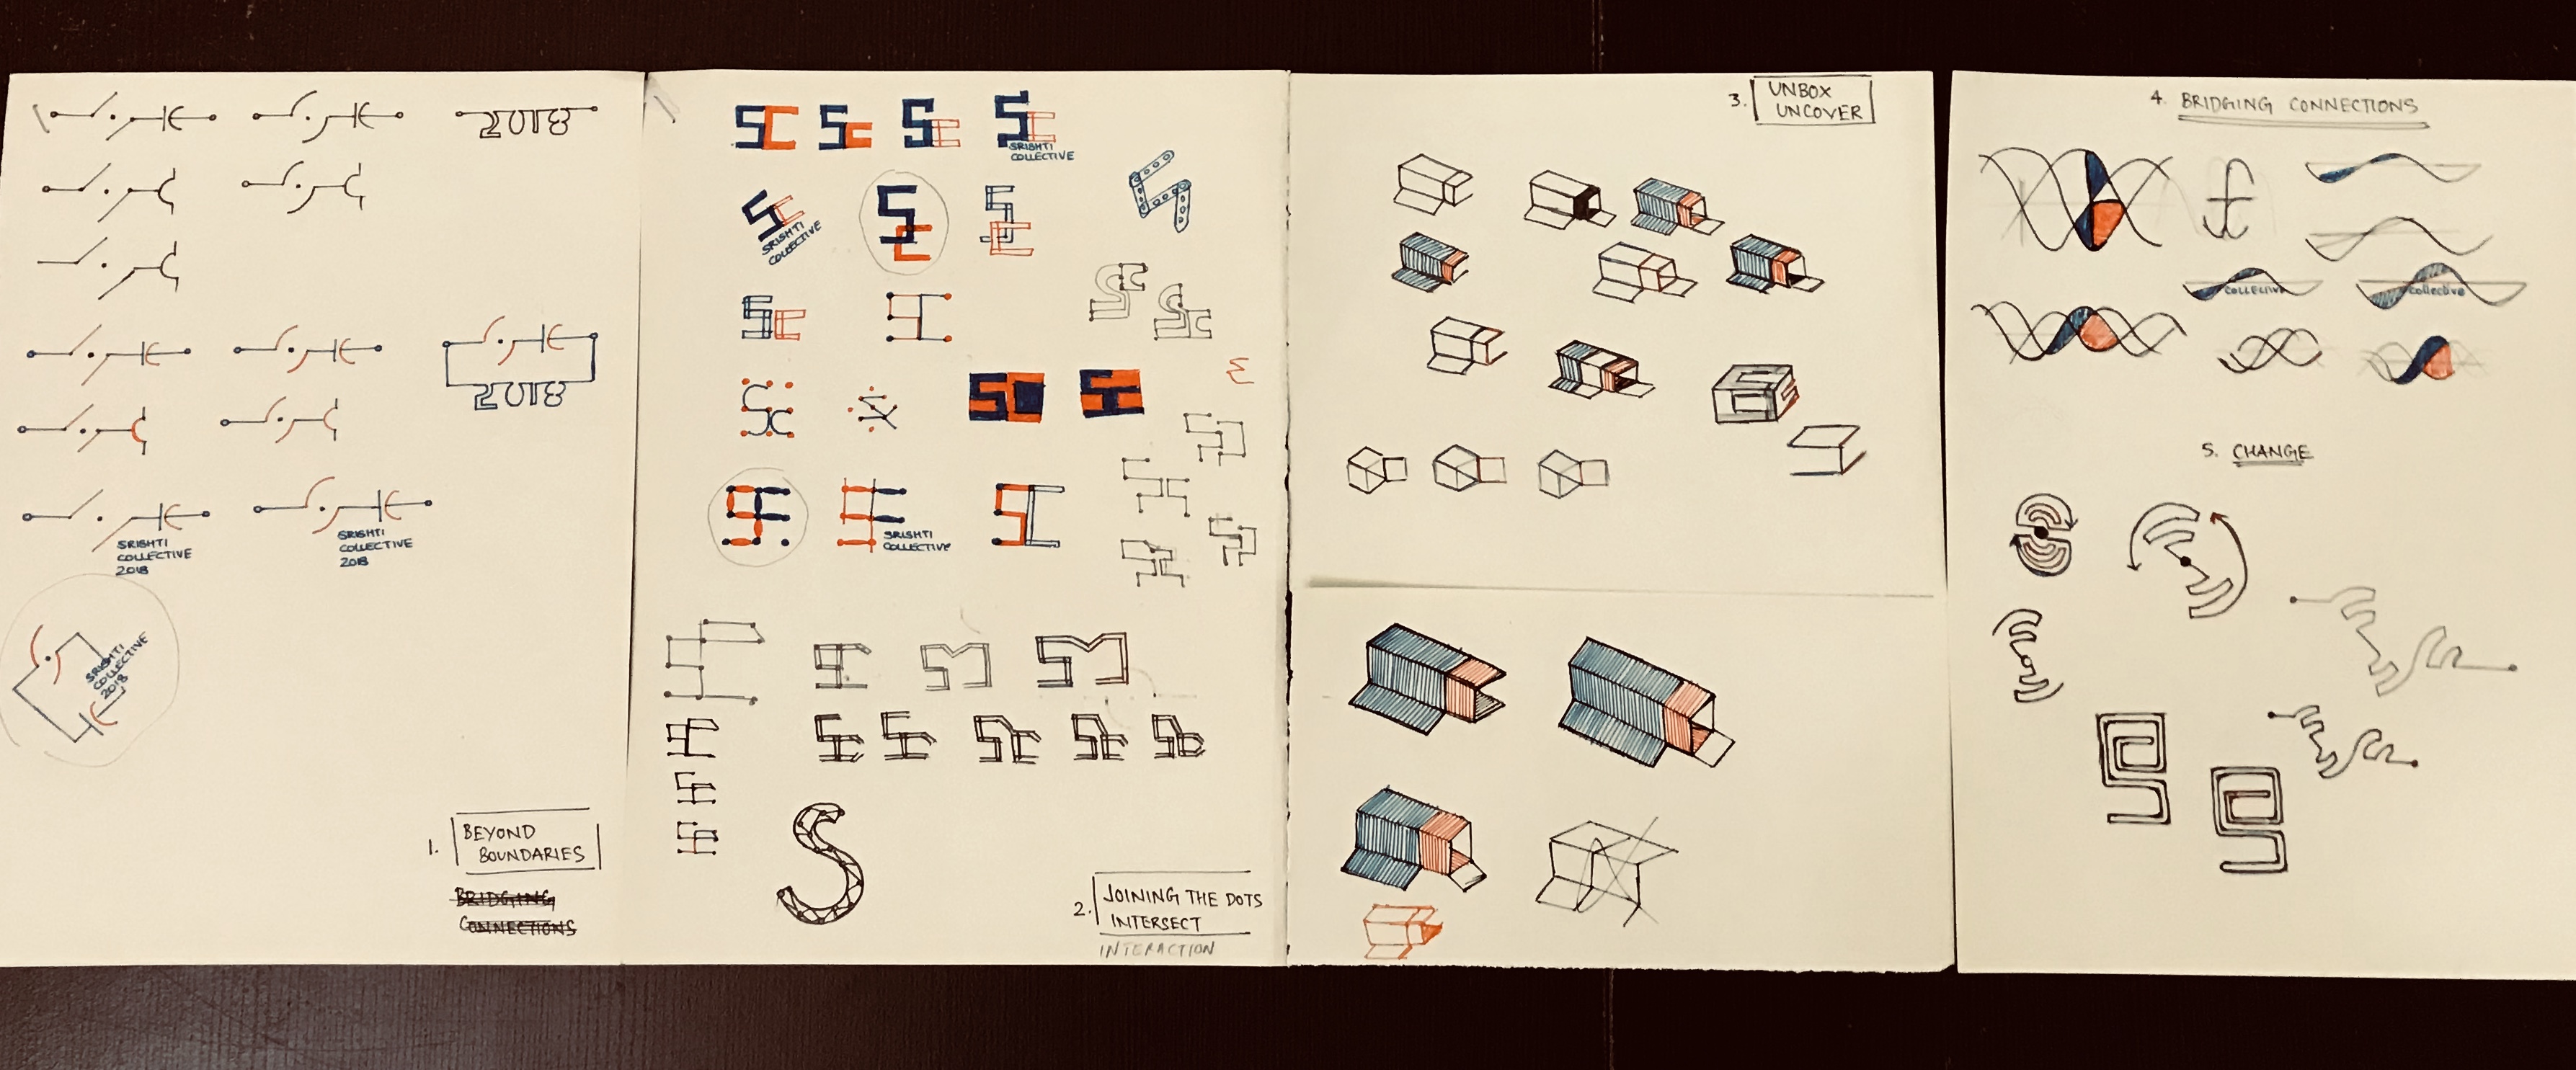 2018
2018
SRISHTI
COLLECTIVE
2018
SRISHTI
COLLECTIVE
2018
SRISHTI
COLLECTIVE
2018
1. BEYOND
BOUNDARIES
BRIDGING
CONNECTIONS
SC
SC
SC
SC
SRISHTI
COLLECTIVE
SC
SRISHTI
COLLECTIVE
SC
SC
S
SC
SC
SC
SC
SC
SRISHTI
COLLECTIVE
SC
S
2. JOINING THE DOTS
INTERSECT
INTERACTION
3. UNBOX
UNCOVER
4. BRIDGING CONNECTIONS
COLLECTIVE
Collective
5. CHANGE